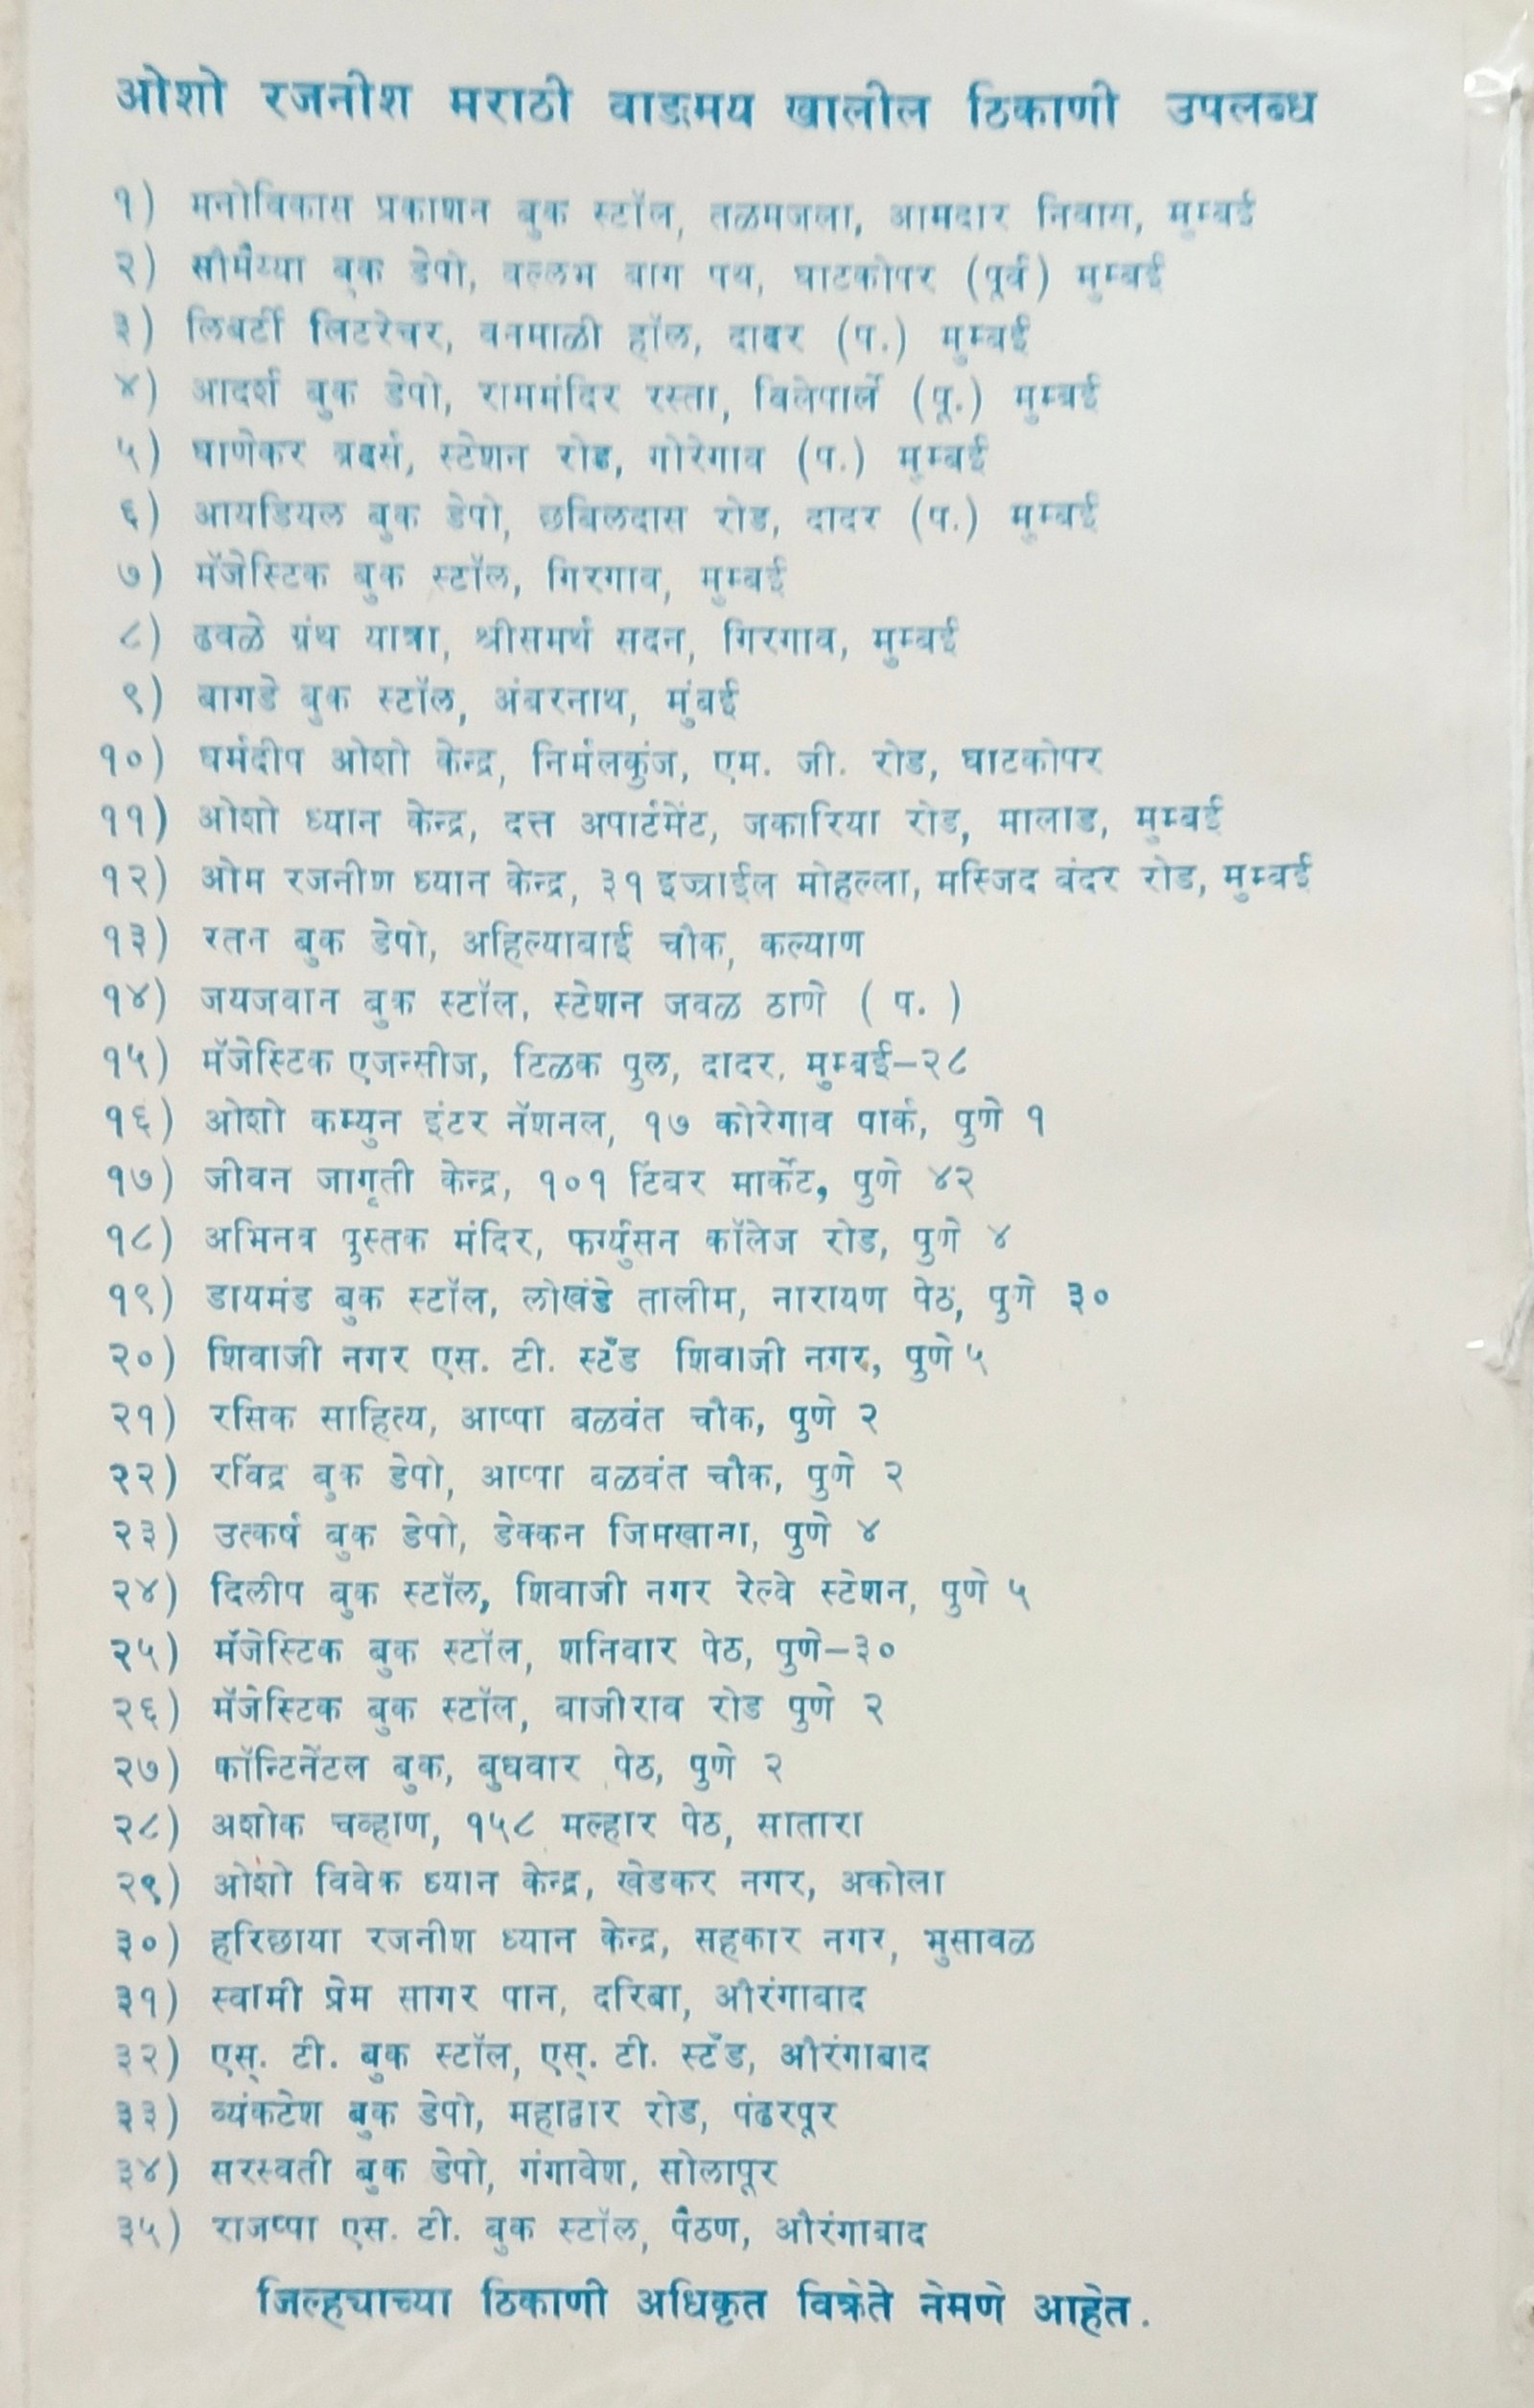 ओशो रजनीश मराठी वाङमय खालील ठिकाणी उपलब्ध
१) मनोविकास प्रकाशन बुक स्टॉल, तळमजला, आमदार निवास, मुम्बई
२) सोमैय्या बुक डेपो, वल्लभ बाग पथ, घाटकोपर (पूर्व) मुम्बई
३) लिबर्टी लिटरेचर, वनमाळी हॉल, दादर (प.) मुम्बई
४) आदर्श बुक डेपो, राममंदिर रस्ता, विलेपार्ले (पू.) मुम्बई
५) घाणेकर ब्रदर्स, स्टेशन रोड, गोरेगाव (प.) मुम्बई
६) आयडियल बुक डेपो, छबिलदास रोड, दादर (प.) मुम्बई
७) मॅजेस्टिक बुक स्टॉल, गिरगाव, मुम्बई
८) ढवळे ग्रंथ यात्रा, श्रीसमर्थ सदन, गिरगाव, मुम्बई
९) बागडे बुक स्टॉल, अंबरनाथ, मुंबई
१०) धर्मदीप ओशो केन्द्र, निर्मलकुंज, एम. जी. रोड, घाटकोपर
११) ओशो ध्यान केन्द्र, दत्त अपार्टमेंट, जकारिया रोड, मालाड, मुम्बई
१२) ओम रजनीश ध्यान केन्द्र, ३१ इज्राईल मोहल्ला, मस्जिद बंदर रोड, मुम्बई
१३) रतन बुक डेपो, अहिल्याबाई चौक, कल्याण
१४) जयजवान बुक स्टॉल, स्टेशन जवळ ठाणे ( प. )
१५) मॅजेस्टिक एजन्सीज, टिळक पुल, दादर, मुम्बई–२८
१६) ओशो कम्युन इंटर नॅशनल, १७ कोरेगाव पार्क, पुणे १
१७) जीवन जागृती केन्द्र, १०१ टिंबर मार्केट, पुणे ४२
१८) अभिनव पुस्तक मंदिर, फर्ग्युसन कॉलेज रोड, पुणे ४
१९) डायमंड बुक स्टॉल, लोखंडे तालीम, नारायण पेठ, पुणे ३०
२०) शिवाजी नगर एस. टी. स्टॅंड शिवाजी नगर, पुणे ५
२१) रसिक साहित्य, आप्पा बळवंत चौक, पुणे २
२२) रविंद्र बुक डेपो, आप्पा बळवंत चौक, पुणे २
२३) उत्कर्ष बुक डेपो, डेक्कन जिमखाना, पुणे ४
२४) दिलीप बुक स्टॉल, शिवाजी नगर रेल्वे स्टेशन, पुणे ५
२५) मॅजेस्टिक बुक स्टॉल, शनिवार पेठ, पुणे–३०
२६) मॅजेस्टिक बुक स्टॉल, बाजीराव रोड पुणे २
२७) कॉन्टिनेंटल बुक, बुधवार पेठ, पुणे २
२८) अशोक चव्हाण, १५८ मल्हार पेठ, सातारा
२९) ओशो विवेक ध्यान केन्द्र, खेडकर नगर, अकोला
३०) हरिछाया रजनीश ध्यान केन्द्र, सहकार नगर, भुसावळ
३१) स्वामी प्रेम सागर पान, दरिबा, औरंगाबाद
३२) एस्. टी. बुक स्टॉल, एस्. टी. स्टॅंड, औरंगाबाद
३३) व्यंकटेश बुक डेपो, महाद्वार रोड, पंढरपूर
३४) सरस्वती बुक डेपो, गंगावेश, सोलापूर
३५) राजप्पा एस. टी. बुक स्टॉल, पैठण, औरंगाबाद
जिल्ह्याच्या ठिकाणी अधिकृत विक्रेते नेमणे आहेत.